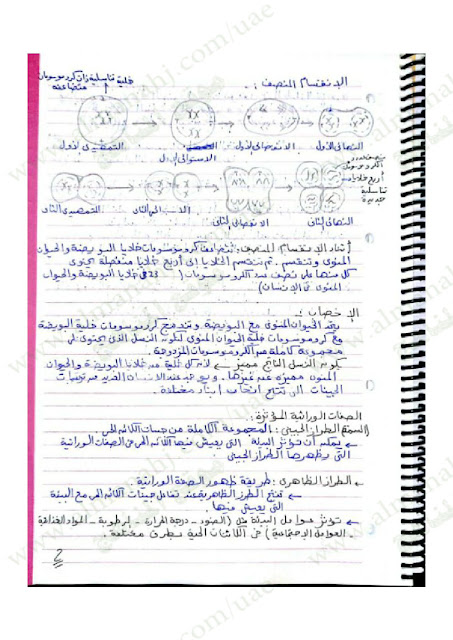 الانقسام المنصف :
خلية تناسلية ذات كروموسومات
متضاعفة
التمهيدي الأول
الاستوائي الأول
الانفصالي الأول
النهائي الأول
أربع خلايا
تناسلية
جديدة
التمهيدي الثاني
الاستوائي الثاني
الانفصالي الثاني
النهائي الثاني
أثناء الانقسام المنصف : تتضاعف كروموسومات خلايا البويضة والحيوان
المنوي وتنقسم . ثم تنقسم الخلايا إلى أربع خلايا منفصلة يحتوي
كل منها على نصف عدد الكروموسومات ( 23 في خلايا البويضة والحيوان
المنوي في الإنسان )
الإخصاب :
يتحد الحيوان المنوي مع البويضة وتندمج كروموسومات خلية البويضة
مع كروموسومات خلية الحيوان المنوي لتكوين النسل الذي يحتوي على
مجموعة كاملة من الكروموسومات المزدوجة
يكون النسل الناتج مميز ← لأن كل خلية من خلايا البويضة والحيوان
المنوي مميزة عن غيرها .
الجينات التي تنتج
الصفات الوراثية المؤثرة :
الطراز الجيني : المجموعة الكاملة من جينات الكائن الحي .
← يمكن أن تؤثر البيئة التي يعيش فيها الكائن الحي على الصفات الوراثية
التي يظهرها الطراز الجيني
الطراز الظاهري : طريقة ظهور الصفة الوراثية .
← تنتج الطرز الظاهرية عند تفاعل جينات الكائن الحي مع البيئة
التي يعيش فيها .
← تؤثر عوامل البيئة مثل ( الضوء - درجة الحرارة - الرطوبة - المواد الغذائية
- العوامل الاجتماعية ) في الكائنات الحية بطرق مختلفة .
2
almanahj.com/uae